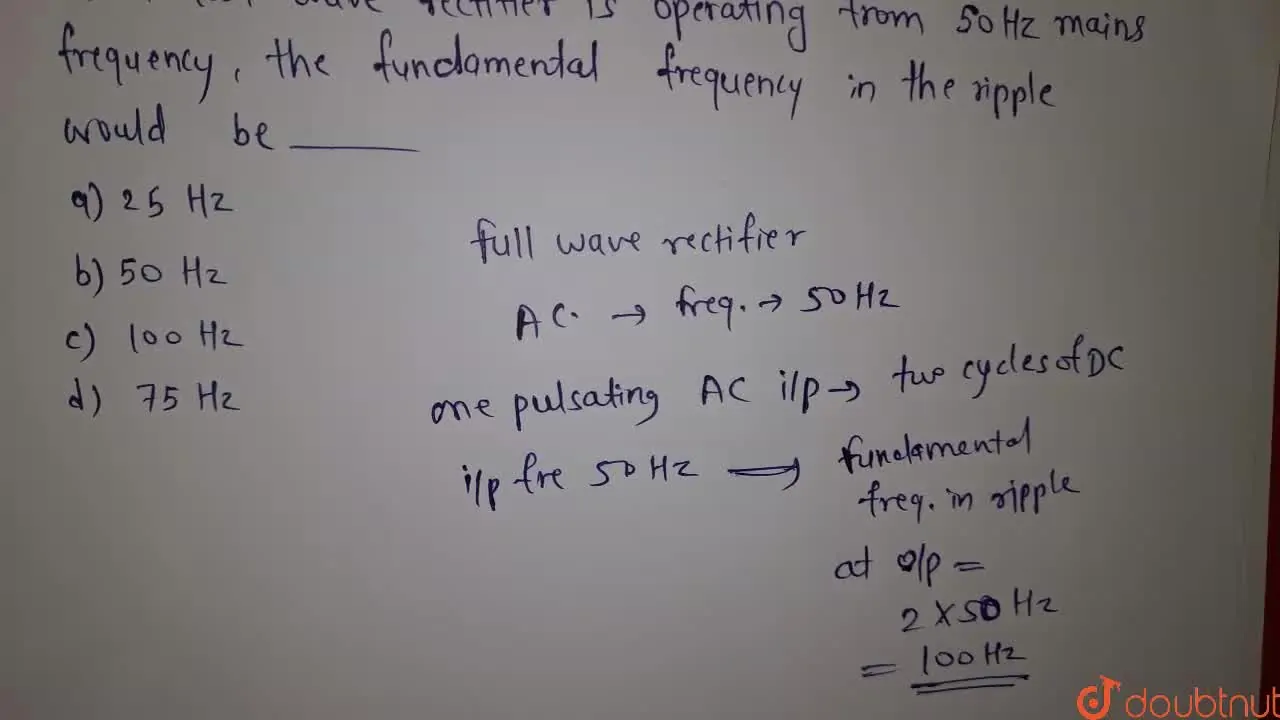 wave rectifier is operating from 50 Hz mains
frequency, the fundamental frequency in the ripple
would be ______
a) 25 Hz
b) 50 Hz
c) 100 Hz
d) 75 Hz
full wave rectifier
AC. → freq. → 50 Hz
one pulsating AC i/p → two cycles of DC
i/p fre 50 Hz ⟹ fundamental
freq. in ripple
at o/p =
2 × 50 Hz
= 100 Hz
doubtnut